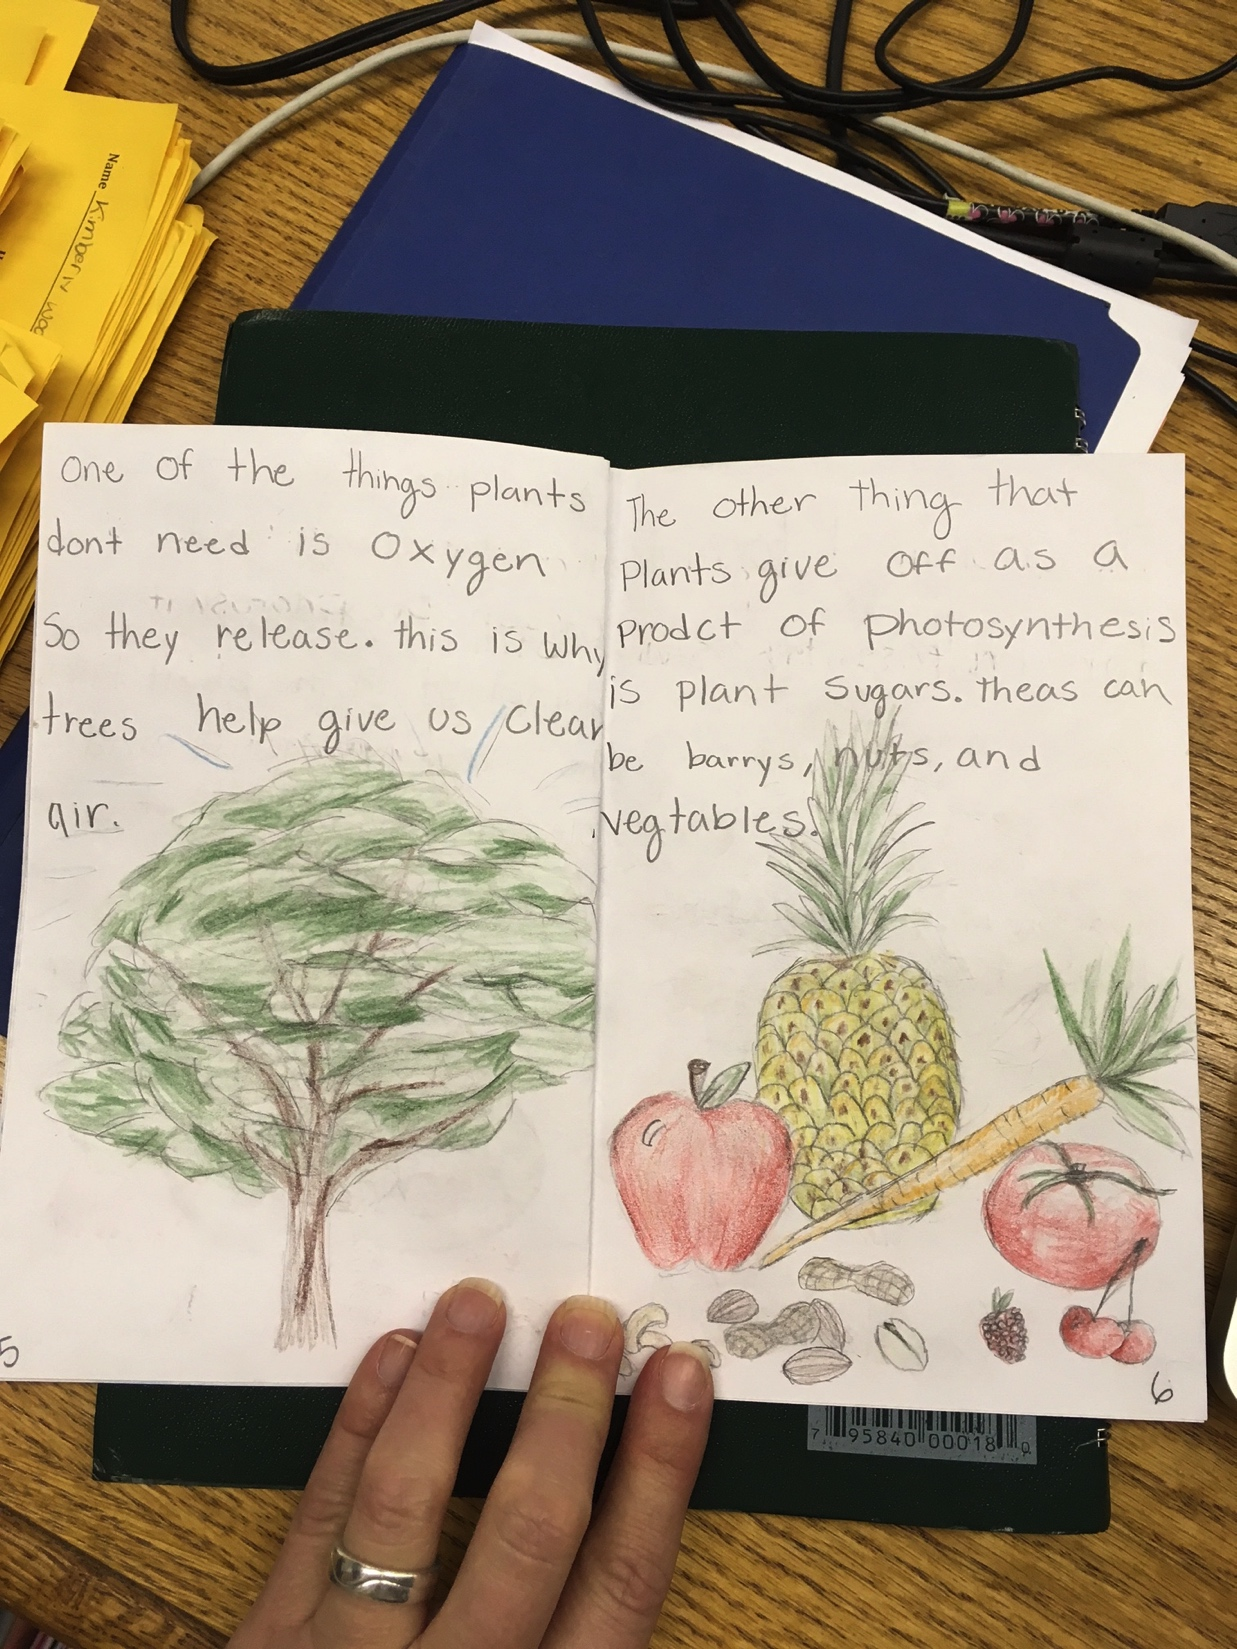 Name Kimberly
One of the things plants
dont need is Oxygen
So they release. this is why
trees help give us clean
air.
5
The other thing that
Plants give off as a
prodct of photosynthesis
is plant sugars. theas can
be barrys, nuts, and
vegtables.
6
7 95840 00018 0